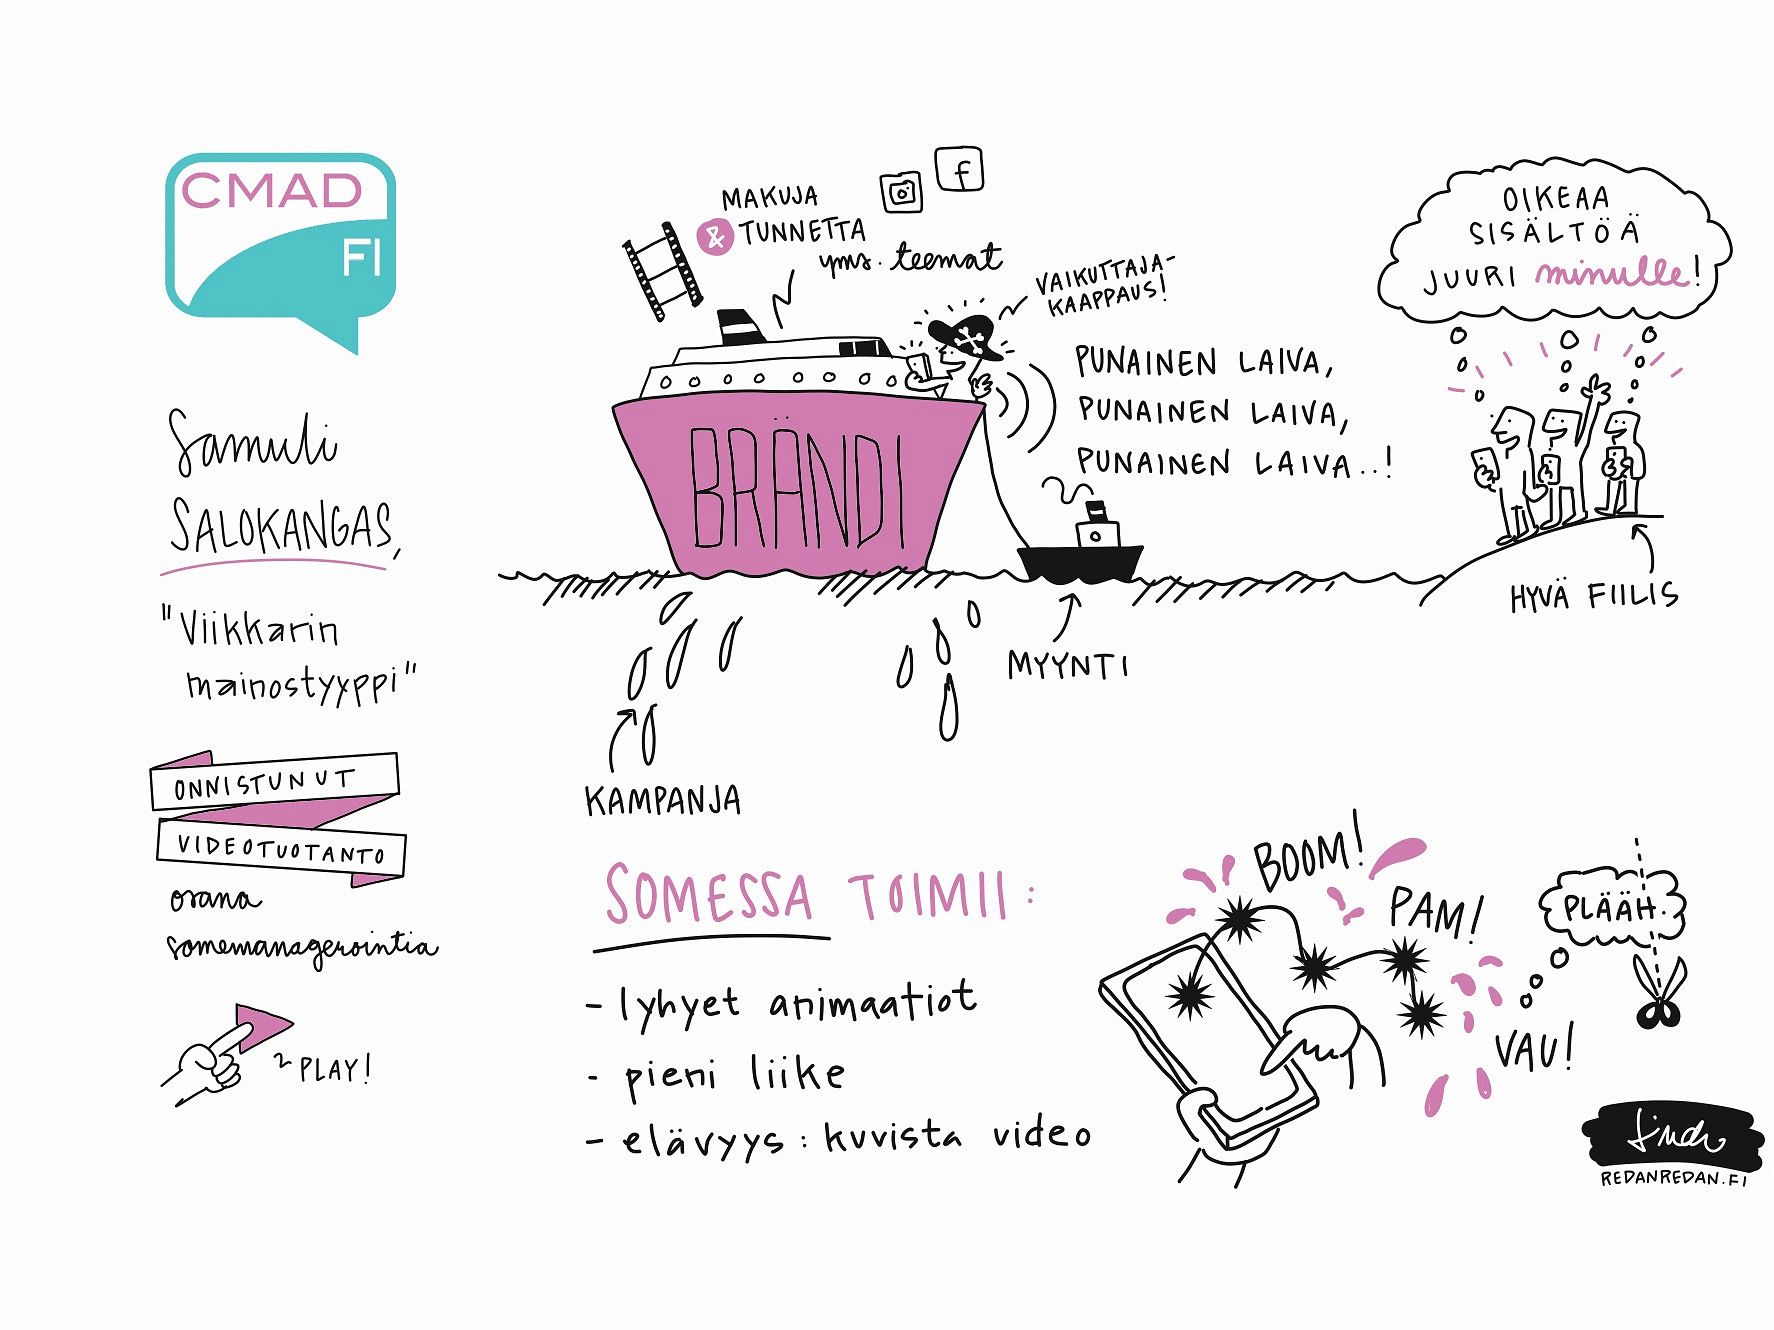 CMAD
FI
Samuli
SALOKANGAS,
"Viikkarin
mainostyyppi"
ONNISTUNUT
VIDEOTUOTANTO
osana
somemanagerointia
PLAY!
MAKUJA
& TUNNETTA
yms. teemat
f
VAIKUTTAJA-
KAAPPAUS!
BRÄNDI
PUNAINEN LAIVA,
PUNAINEN LAIVA,
PUNAINEN LAIVA..!
OIKEAA
SISÄLTÖÄ
JUURI minulle!
HYVÄ FIILIS
MYYNTI
KAMPANJA
SOMESSA TOIMII:
- lyhyet animaatiot
- pieni liike
- elävyys: kuvista video
BOOM!
PAM!
VAU!
PLÄÄH.
REDANREDAN.FI